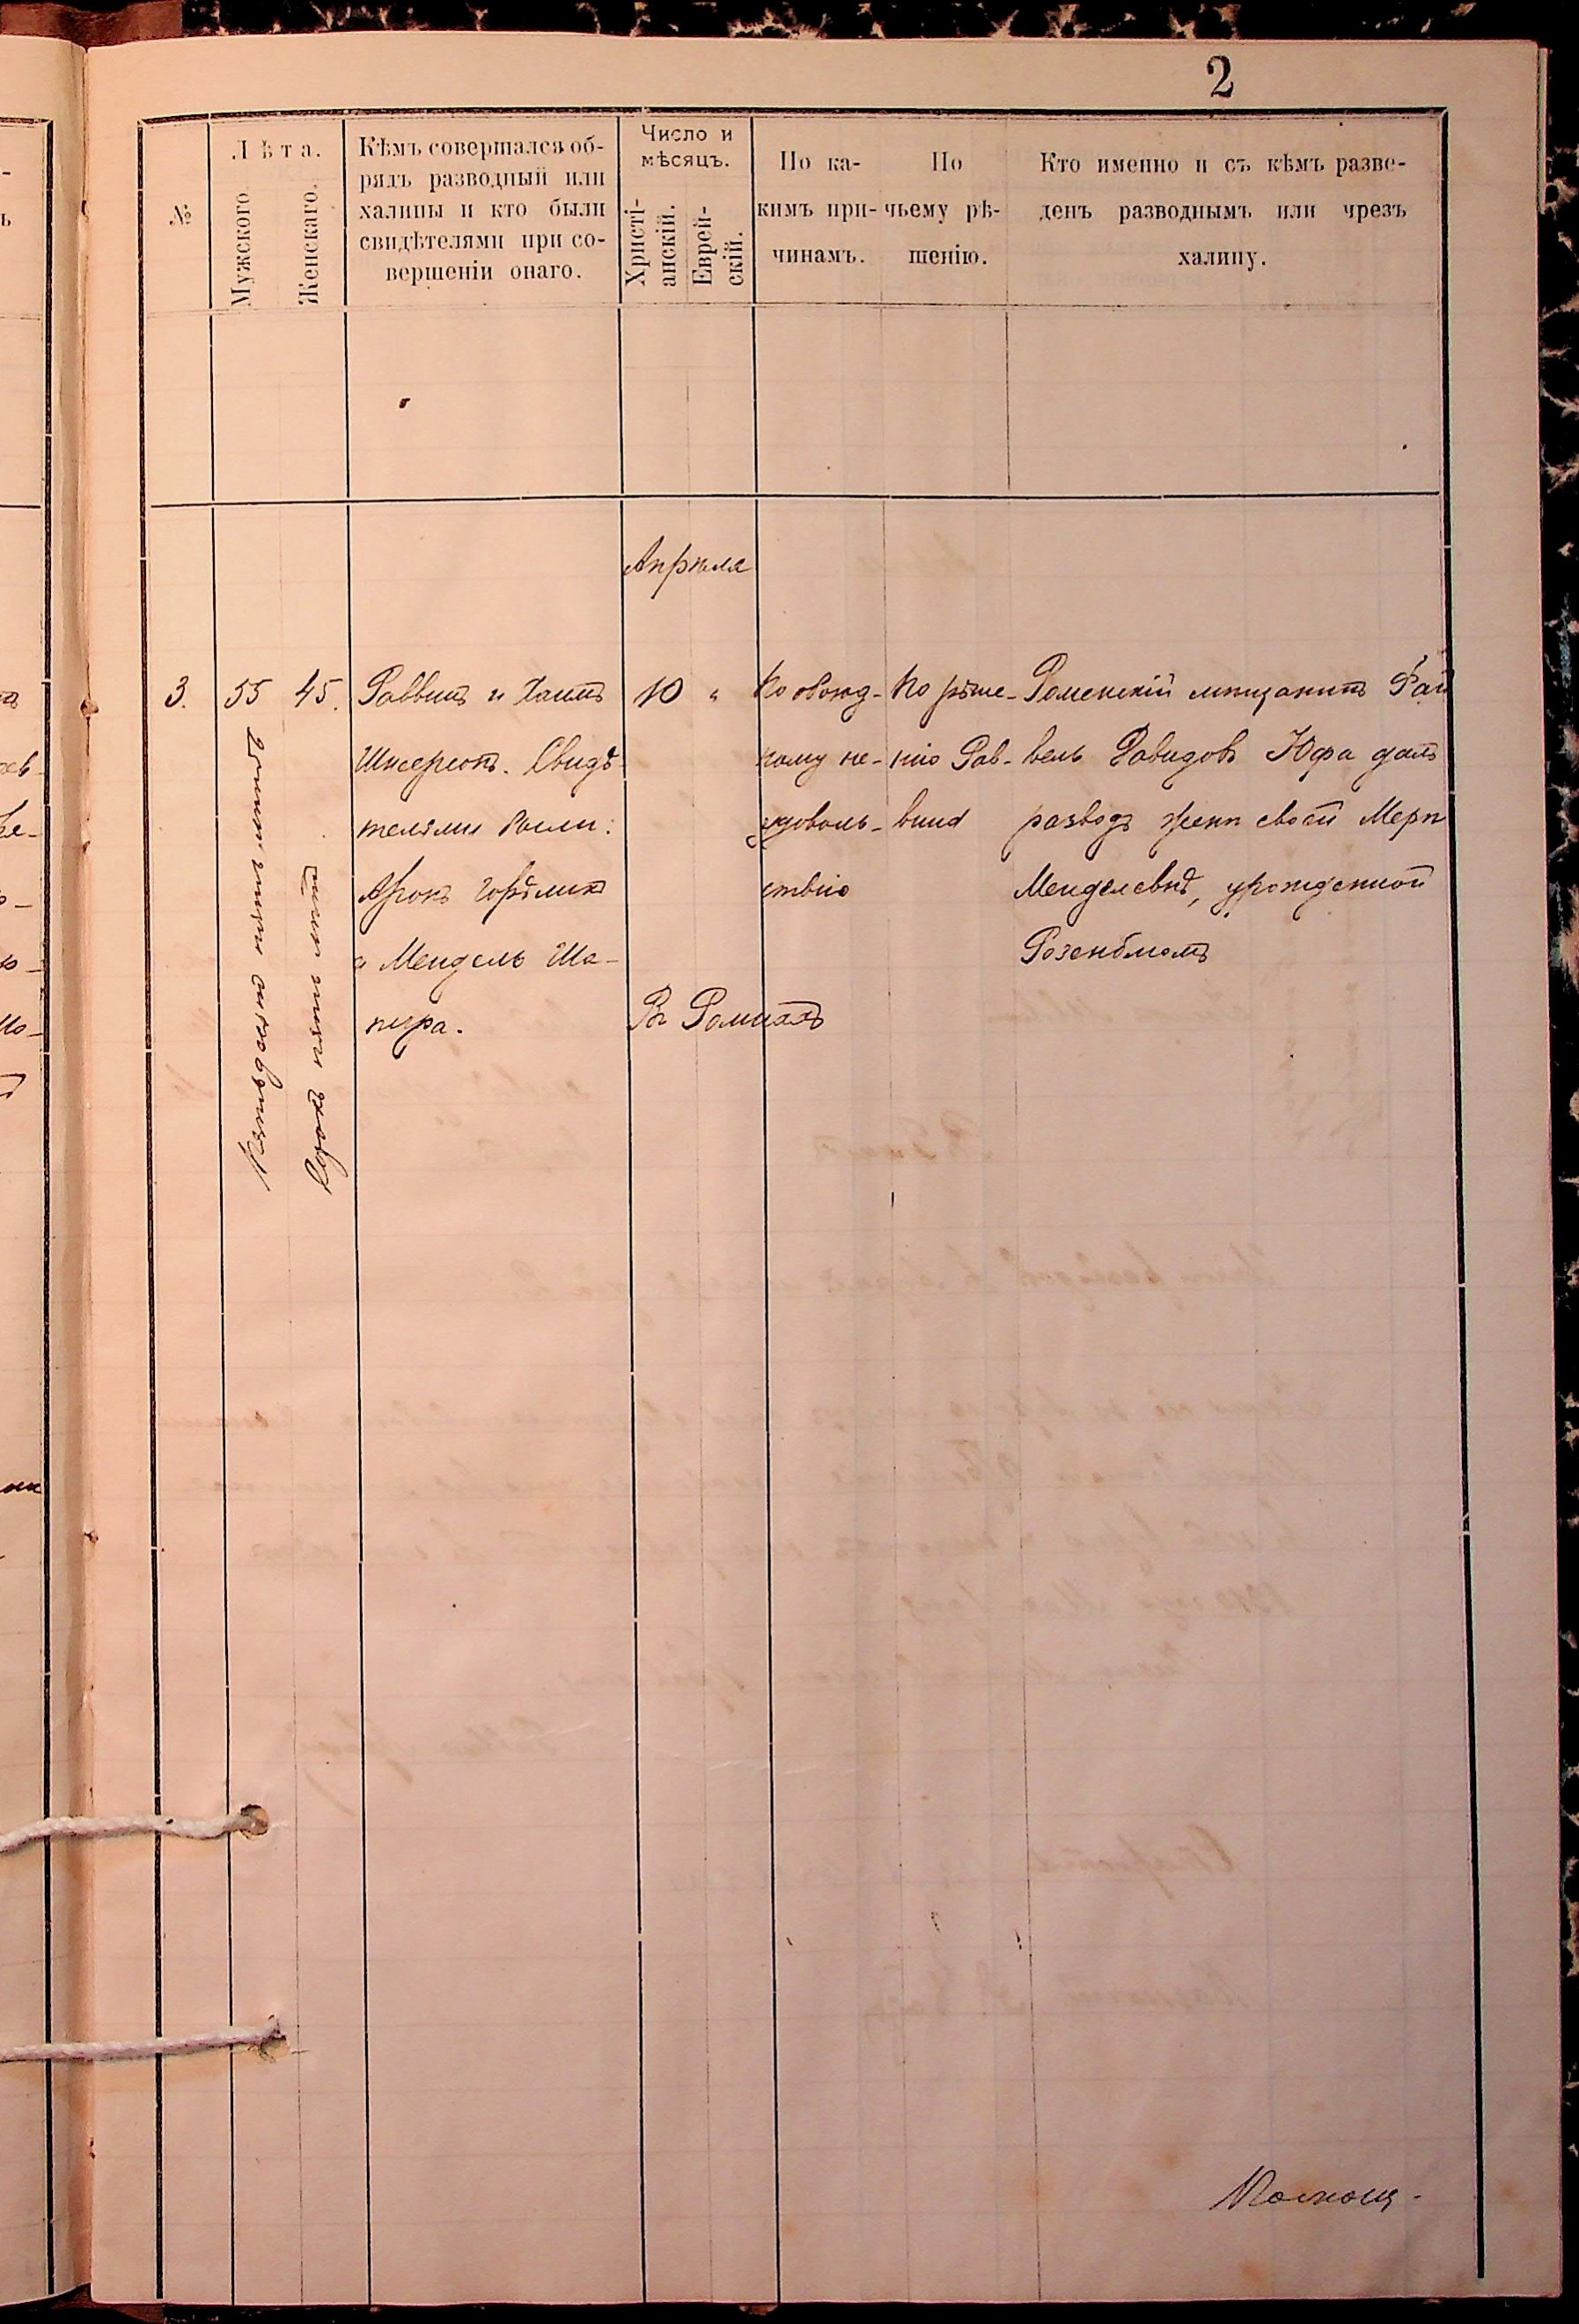 2
№
Лѣта.
Мужского
Женскаго.
Кѣмъ совершался об-
рядъ разводный или
халицы и кто были
свидѣтелями при со-
вершеніи онаго.
Число и
мѣсяцъ.
Христі-
анскій.
Еврей-
скій.
По ка-
кимъ при-
чинамъ.
По
чьему рѣ-
шенію.
Кто именно и съ кѣмъ разве-
денъ разводнымъ или чрезъ
халицу.
Апрѣля
3.
55
Пятьдесятъ пять лѣтъ
45.
Сорокъ пять лѣтъ
Раввинъ и Хаимъ
Шнеерсонъ. Свидѣ-
телями были:
Аронъ Горѣликъ
и Мендель Ша-
пира.
10 "
Въ Ромнахъ
По обоюд-
ному не-
удоволь-
ствію
По рѣше-
нію Рав-
вина
Роменскій мѣщанинъ Фай
вель Давидовъ Юфа далъ
разводъ женѣ своей Мерѣ
Менделевнѣ, урожденной
Розенблюмъ